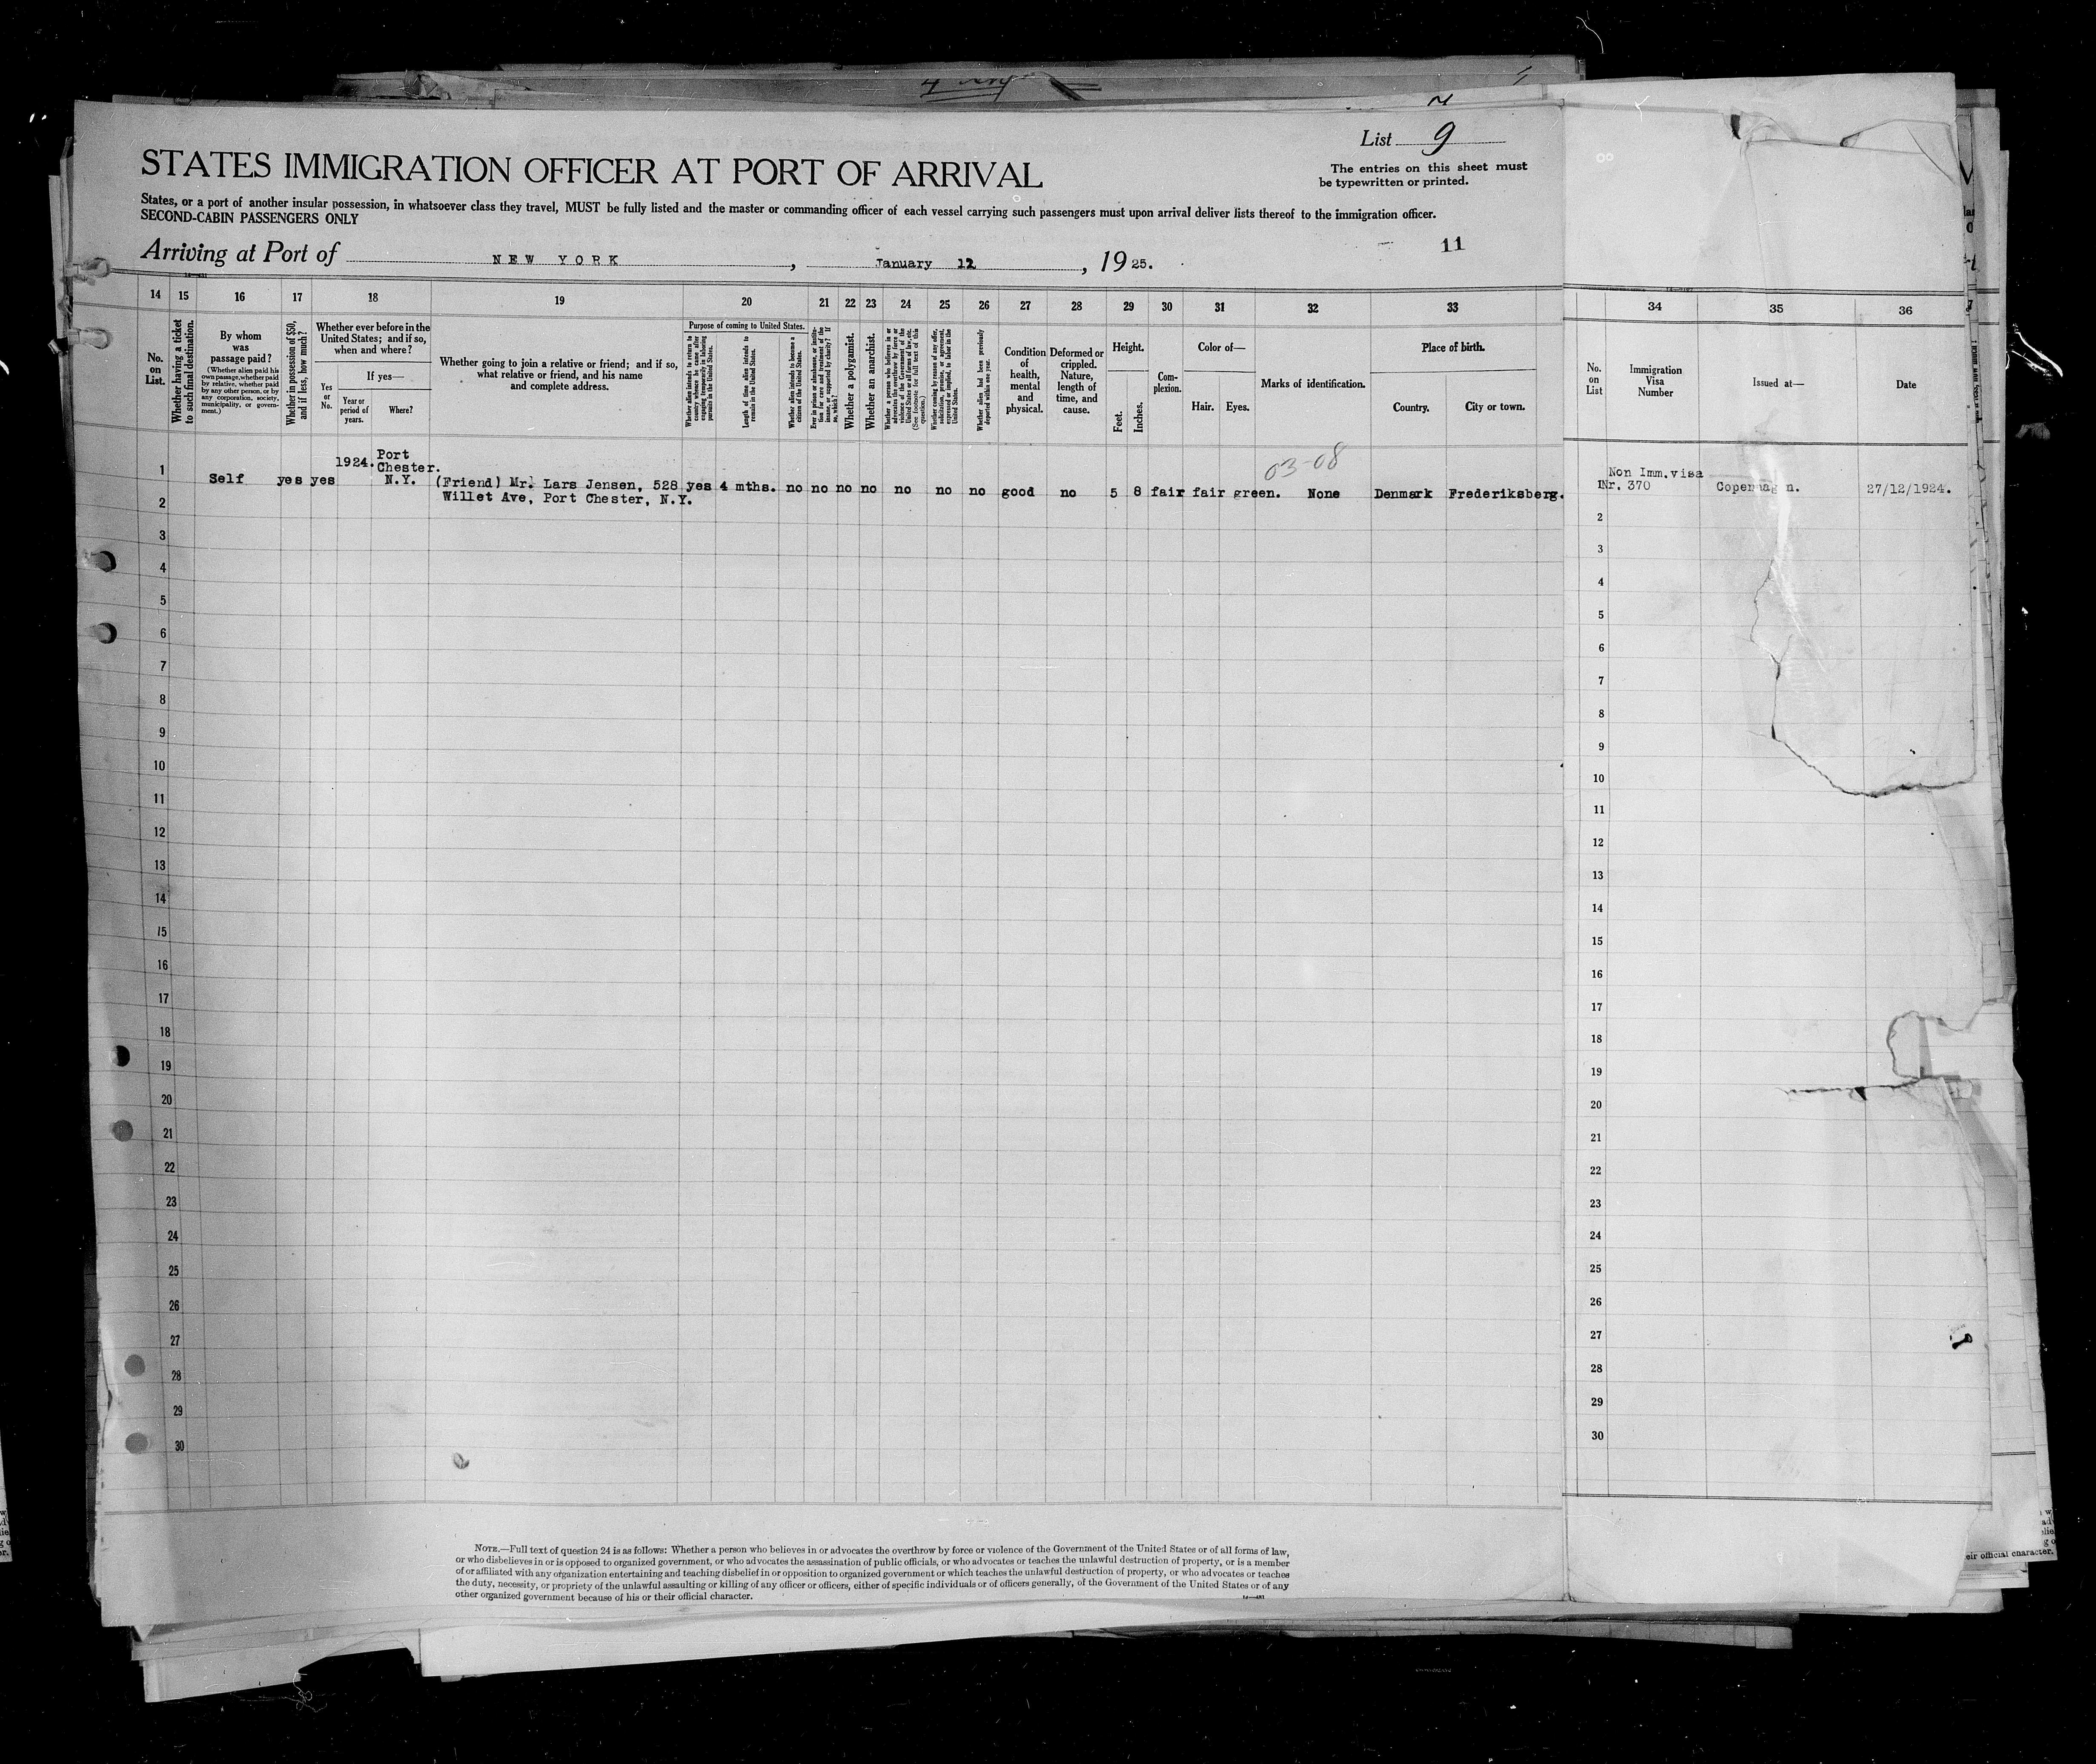 List 9
The entries on this sheet must
be typewritten or printed.
STATES IMMIGRATION OFFICER AT PORT OF ARRIVAL
States, or a port of another insular possession, in whatsoever class they travel, MUST be fully listed and the master or commanding officer of each vessel carrying such passengers must upon arrival deliver lists thereof to the immigration officer.
SECOND-CABIN PASSENGERS ONLY
11
Arriving at Port of NEW YORK, January 12, 1925.
14 15 16 17 18 19 20 21 22 23 24 25 26 27 28 29 30 31 32 33 34 35 36
No. on List.
Whether having a ticket to such final destination.
By whom was passage paid?
(Whether alien paid his own passage, whether paid by relative, whether paid by any other person, or by any corporation, society, municipality, or government.)
Whether in possession of $50, and if less, how much?
Whether ever before in the United States; and if so, when and where?
Yes or No.
If yes—
Year or period of years.
Where?
Whether going to join a relative or friend; and if so, what relative or friend, and his name and complete address.
Purpose of coming to United States.
Whether alien intends to return to country whence he came after engaging temporarily in laboring pursuits in the United States.
Length of time alien intends to remain in the United States.
Whether alien intends to become a citizen of the United States.
Ever in prison or almshouse, or institution for care and treatment of the insane, or supported by charity? If so, which?
Whether a polygamist.
Whether an anarchist.
(See footnote for full text of this question.)
Whether coming by reason of any offer, solicitation, promise, or agreement, expressed or implied, to labor in the United States.
Whether alien had been previously deported within one year.
Condition of health, mental and physical.
Deformed or crippled. Nature, length of time, and cause.
Height.
Feet.
Inches.
Complexion.
Color of—
Hair.
Eyes.
Marks of identification.
Place of birth.
Country.
City or town.
No. on List
Immigration Visa Number
Issued at—
Date
03-08
1 Self yes yes 1924. Port Chester. N.Y. (Friend) Mr. Lars Jensen, 528 yes 4 mths. no no no no no no no good no 5 8 fair fair green. None Denmark Frederiksberg. 1 Non Imm.visa Nr. 370 Copenhagen. 27/12/1924.
Willet Ave, Port Chester, N.Y.
2 2
3 3
4 4
5 5
6 6
7 7
8 8
9 9
10 10
11 11
12 12
13 13
14 14
15 15
16 16
17 17
18 18
19 19
20 20
21 21
22 22
23 23
24 24
25 25
26 26
27 27
28 28
29 29
30 30
NOTE.—Full text of question 24 is as follows: Whether a person who believes in or advocates the overthrow by force or violence of the Government of the United States or of all forms of law,
or who disbelieves in or is opposed to organized government, or who advocates the assassination of public officials, or who advocates or teaches the unlawful destruction of property, or is a member
of or affiliated with any organization entertaining and teaching disbelief in or opposition to organized government or which teaches the unlawful destruction of property, or who advocates or teaches
the duty, necessity, or propriety of the unlawful assaulting or killing of any officer or officers, either of specific individuals or of officers generally, of the Government of the United States or of any
other organized government because of his or their official character.
eir official character.